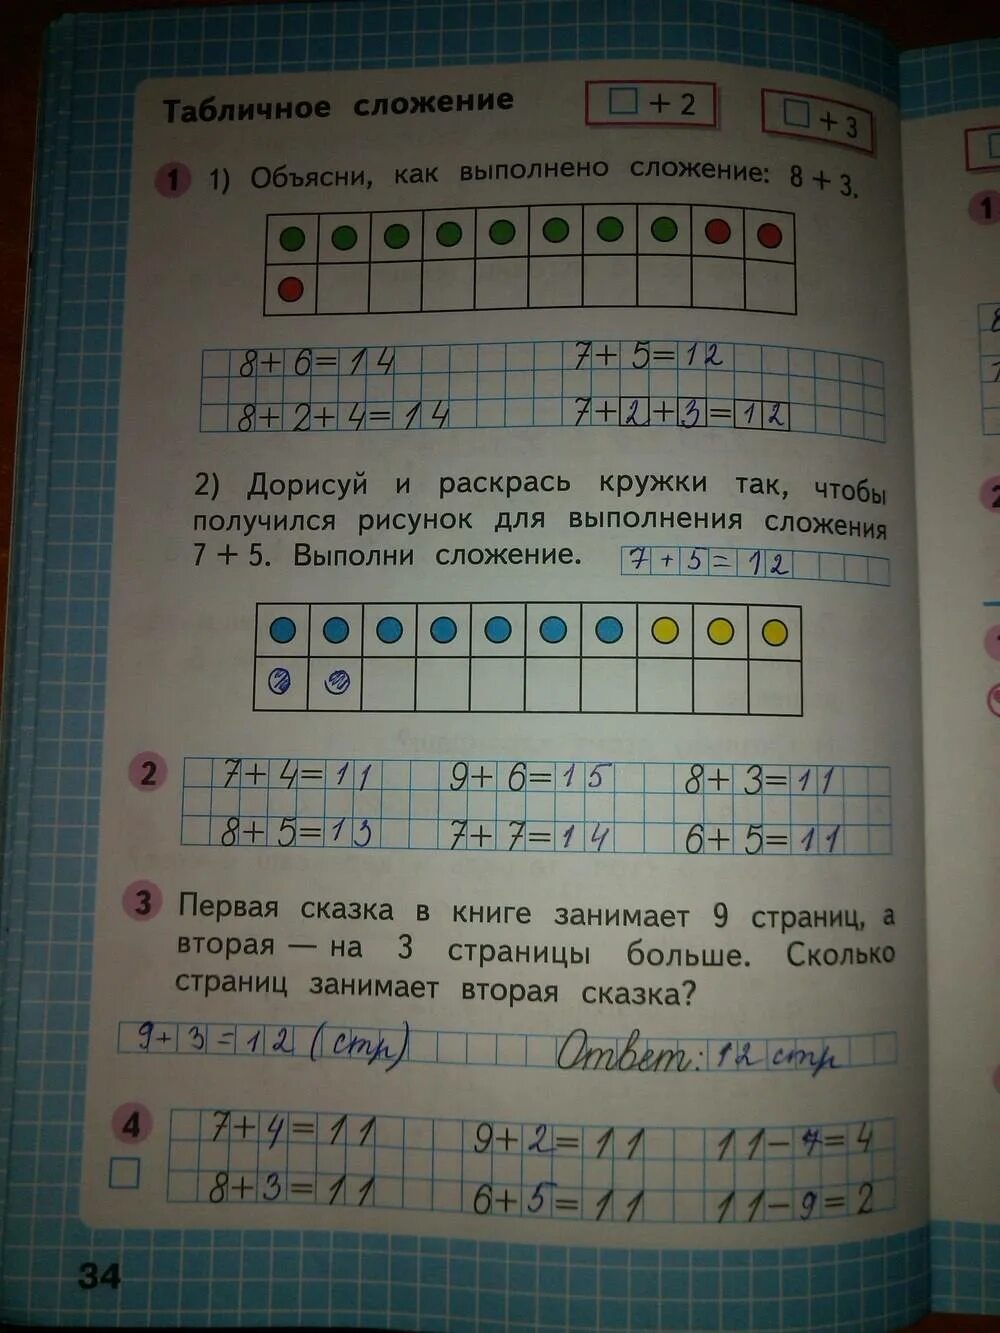 Табличное сложение □ + 2 □ + 3
1 1) Объясни, как выполнено сложение: 8 + 3.
8+6=14 7+5=12
8+2+4=14 7+2+3=12
2) Дорисуй и раскрась кружки так, чтобы
получился рисунок для выполнения сложения
7 + 5. Выполни сложение. 7+5=12
2 7+4=11 9+6=15 8+3=11
8+5=13 7+7=14 6+5=11
3 Первая сказка в книге занимает 9 страниц, а
вторая — на 3 страницы больше. Сколько
страниц занимает вторая сказка?
9+3=12 (стр) Ответ: 12 стр
4 7+4=11 9+2=11 11-7=4
8+3=11 6+5=11 11-9=2
34
1